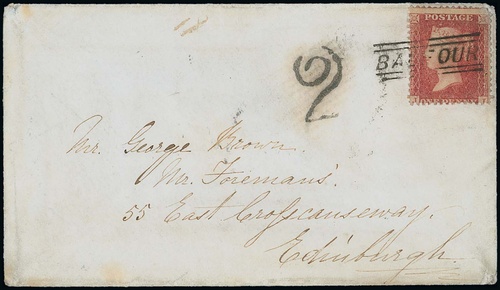 POSTAGE
BALFOUR
2
Mr. George Brown.
Mr. Foremans'
55 East Crosscauseway.
Edinburgh.